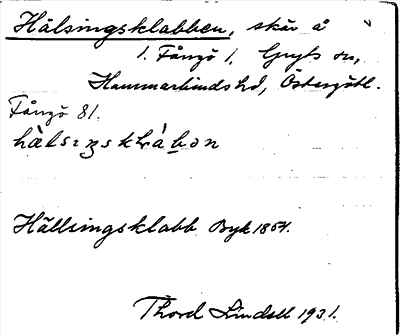 Hälsingsklabben, skär å
1. Fångö 1, Gryts sn,
Hammarkinds hd, Östergötl.
Fångö 81.
hälsıŋsklábən
Hällsingsklabb Byk 1854.
Thord Lindell 1931.